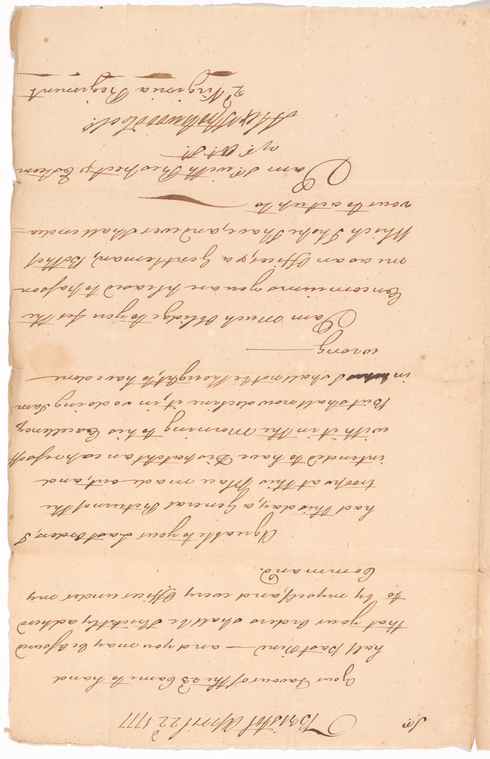 Sir
Bristol April 22. 1777
Your Favour of the 22 Came to hand
half Past Nine — and you may be assured
that your Orders shall be Strictly adhered
to by myself, and every Officer under my
Command.
Agreeable to your Last Orders, I
had this day, a General Return of the
troops at this Place made out, and
intended to have Dispatch't an express off
with it in the Morning to his Excellency,
But shall now decline it, in so doing I am
in hopes I shall not be thought, to have done
wrong
I am much Oblidge to you for the
Encomiums you are pleased to pass on
me as an Officer, & a Gentleman, Both of
Which I hope I have, and ever shall endea=
vour to act up to
I am Sr. with The respect, & Esteem
Alex Spotswood Colo.
2d Virginia Regiment